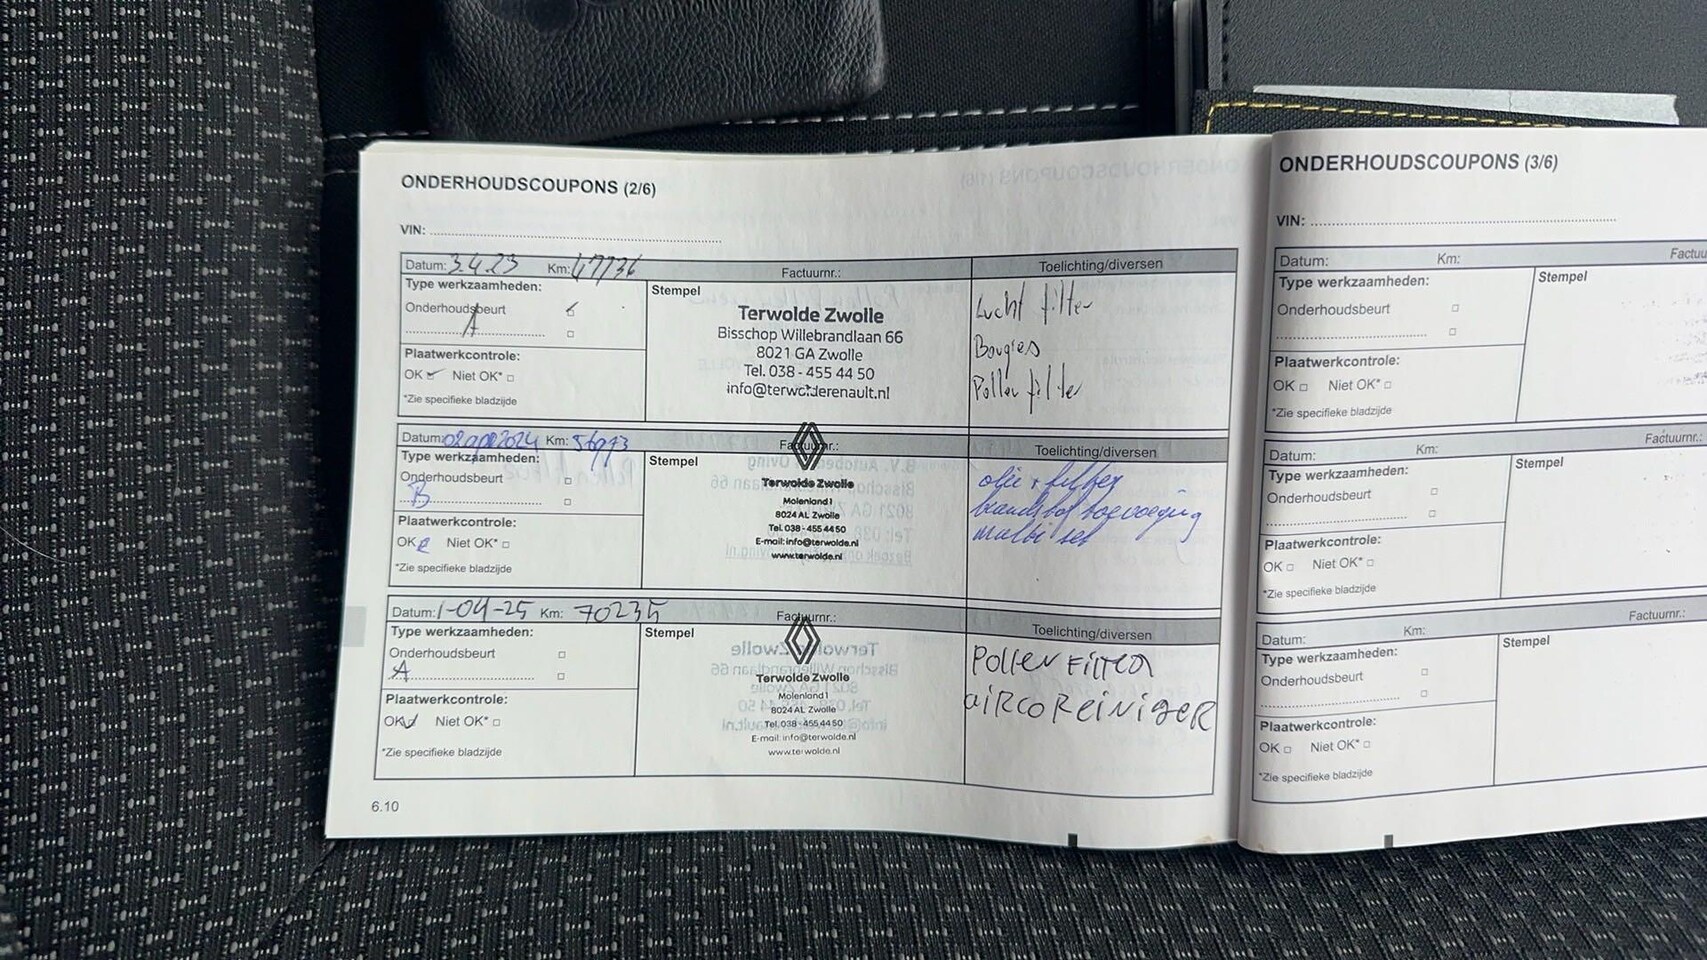 ONDERHOUDSCOUPONS (2/6)
VIN:
Datum: 3.4.23 Km: 47736 Factuurnr.: Toelichting/diversen
Type werkzaamheden:
Onderhoudsbeurt
A
Plaatwerkcontrole:
OK Niet OK*
*Zie specifieke bladzijde
Stempel
Terwolde Zwolle
Bisschop Willebrandlaan 66
8021 GA Zwolle
Tel. 038 - 455 44 50
info@terwolderenault.nl
Lucht filter
Bougies
Pollen filter
Datum: 02 apr 2024 Km: Factuurnr.: Toelichting/diversen
Type werkzaamheden:
Onderhoudsbeurt
B
Plaatwerkcontrole:
OK Niet OK*
*Zie specifieke bladzijde
Stempel
Terwolde Zwolle
Molenland 1
8024 AL Zwolle
Tel. 038 - 455 44 50
E-mail: info@terwolde.nl
www.terwolde.nl
olie + filter
brandstof toevoeging
multi set
Datum: 1-04-25 Km: 70235 Factuurnr.: Toelichting/diversen
Type werkzaamheden:
Onderhoudsbeurt
A
Plaatwerkcontrole:
OK Niet OK*
*Zie specifieke bladzijde
Stempel
Terwolde Zwolle
Molenland 1
8024 AL Zwolle
Tel. 038 - 455 44 50
E-mail: info@terwolde.nl
www.terwolde.nl
Pollen Filter
airco Reiniger
6.10
ONDERHOUDSCOUPONS (3/6)
VIN:
Datum: Km: Factuu
Type werkzaamheden:
Onderhoudsbeurt
Plaatwerkcontrole:
OK Niet OK*
*Zie specifieke bladzijde
Stempel
Datum: Km: Factuurnr.:
Type werkzaamheden:
Onderhoudsbeurt
Plaatwerkcontrole:
OK Niet OK*
*Zie specifieke bladzijde
Stempel
Datum: Km: Factuurnr.:
Type werkzaamheden:
Onderhoudsbeurt
Plaatwerkcontrole:
OK Niet OK*
*Zie specifieke bladzijde
Stempel